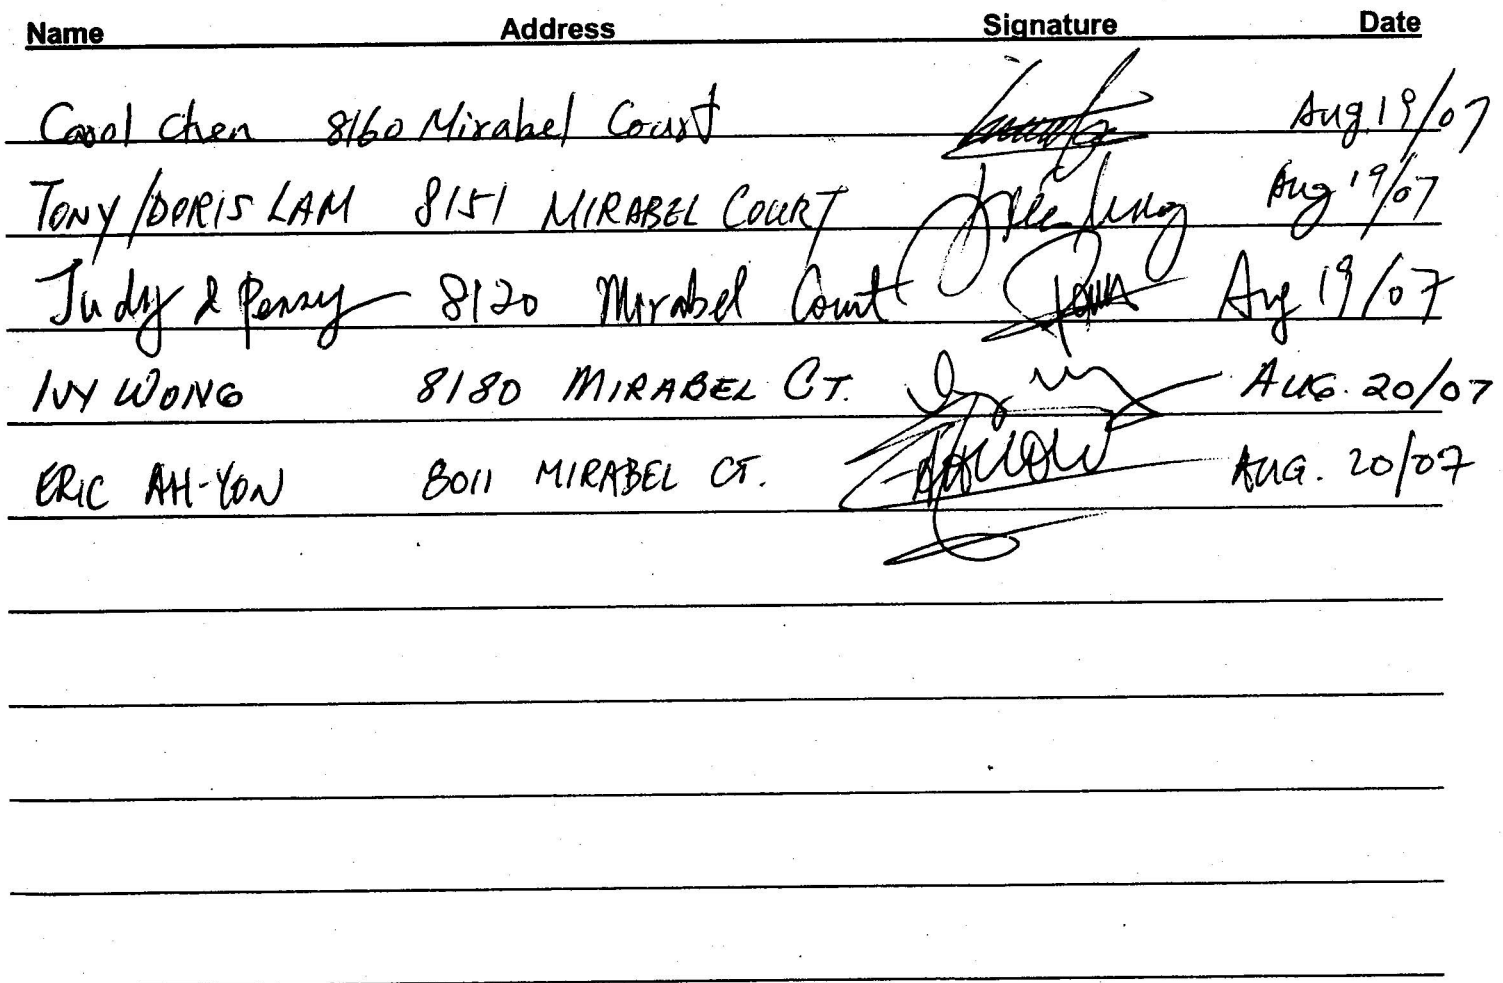 Name Address Signature Date
Carol Chen 8160 Mirabel Court Aug.19/07
TONY/DORIS LAM 8151 MIRABEL COURT Aug 19/07
Judy & Penny 8120 Mirabel Court Aug 19/07
IVY WONG 8180 MIRABEL CT. AUG. 20/07
ERIC AH-YON 8011 MIRABEL CT. AUG. 20/07